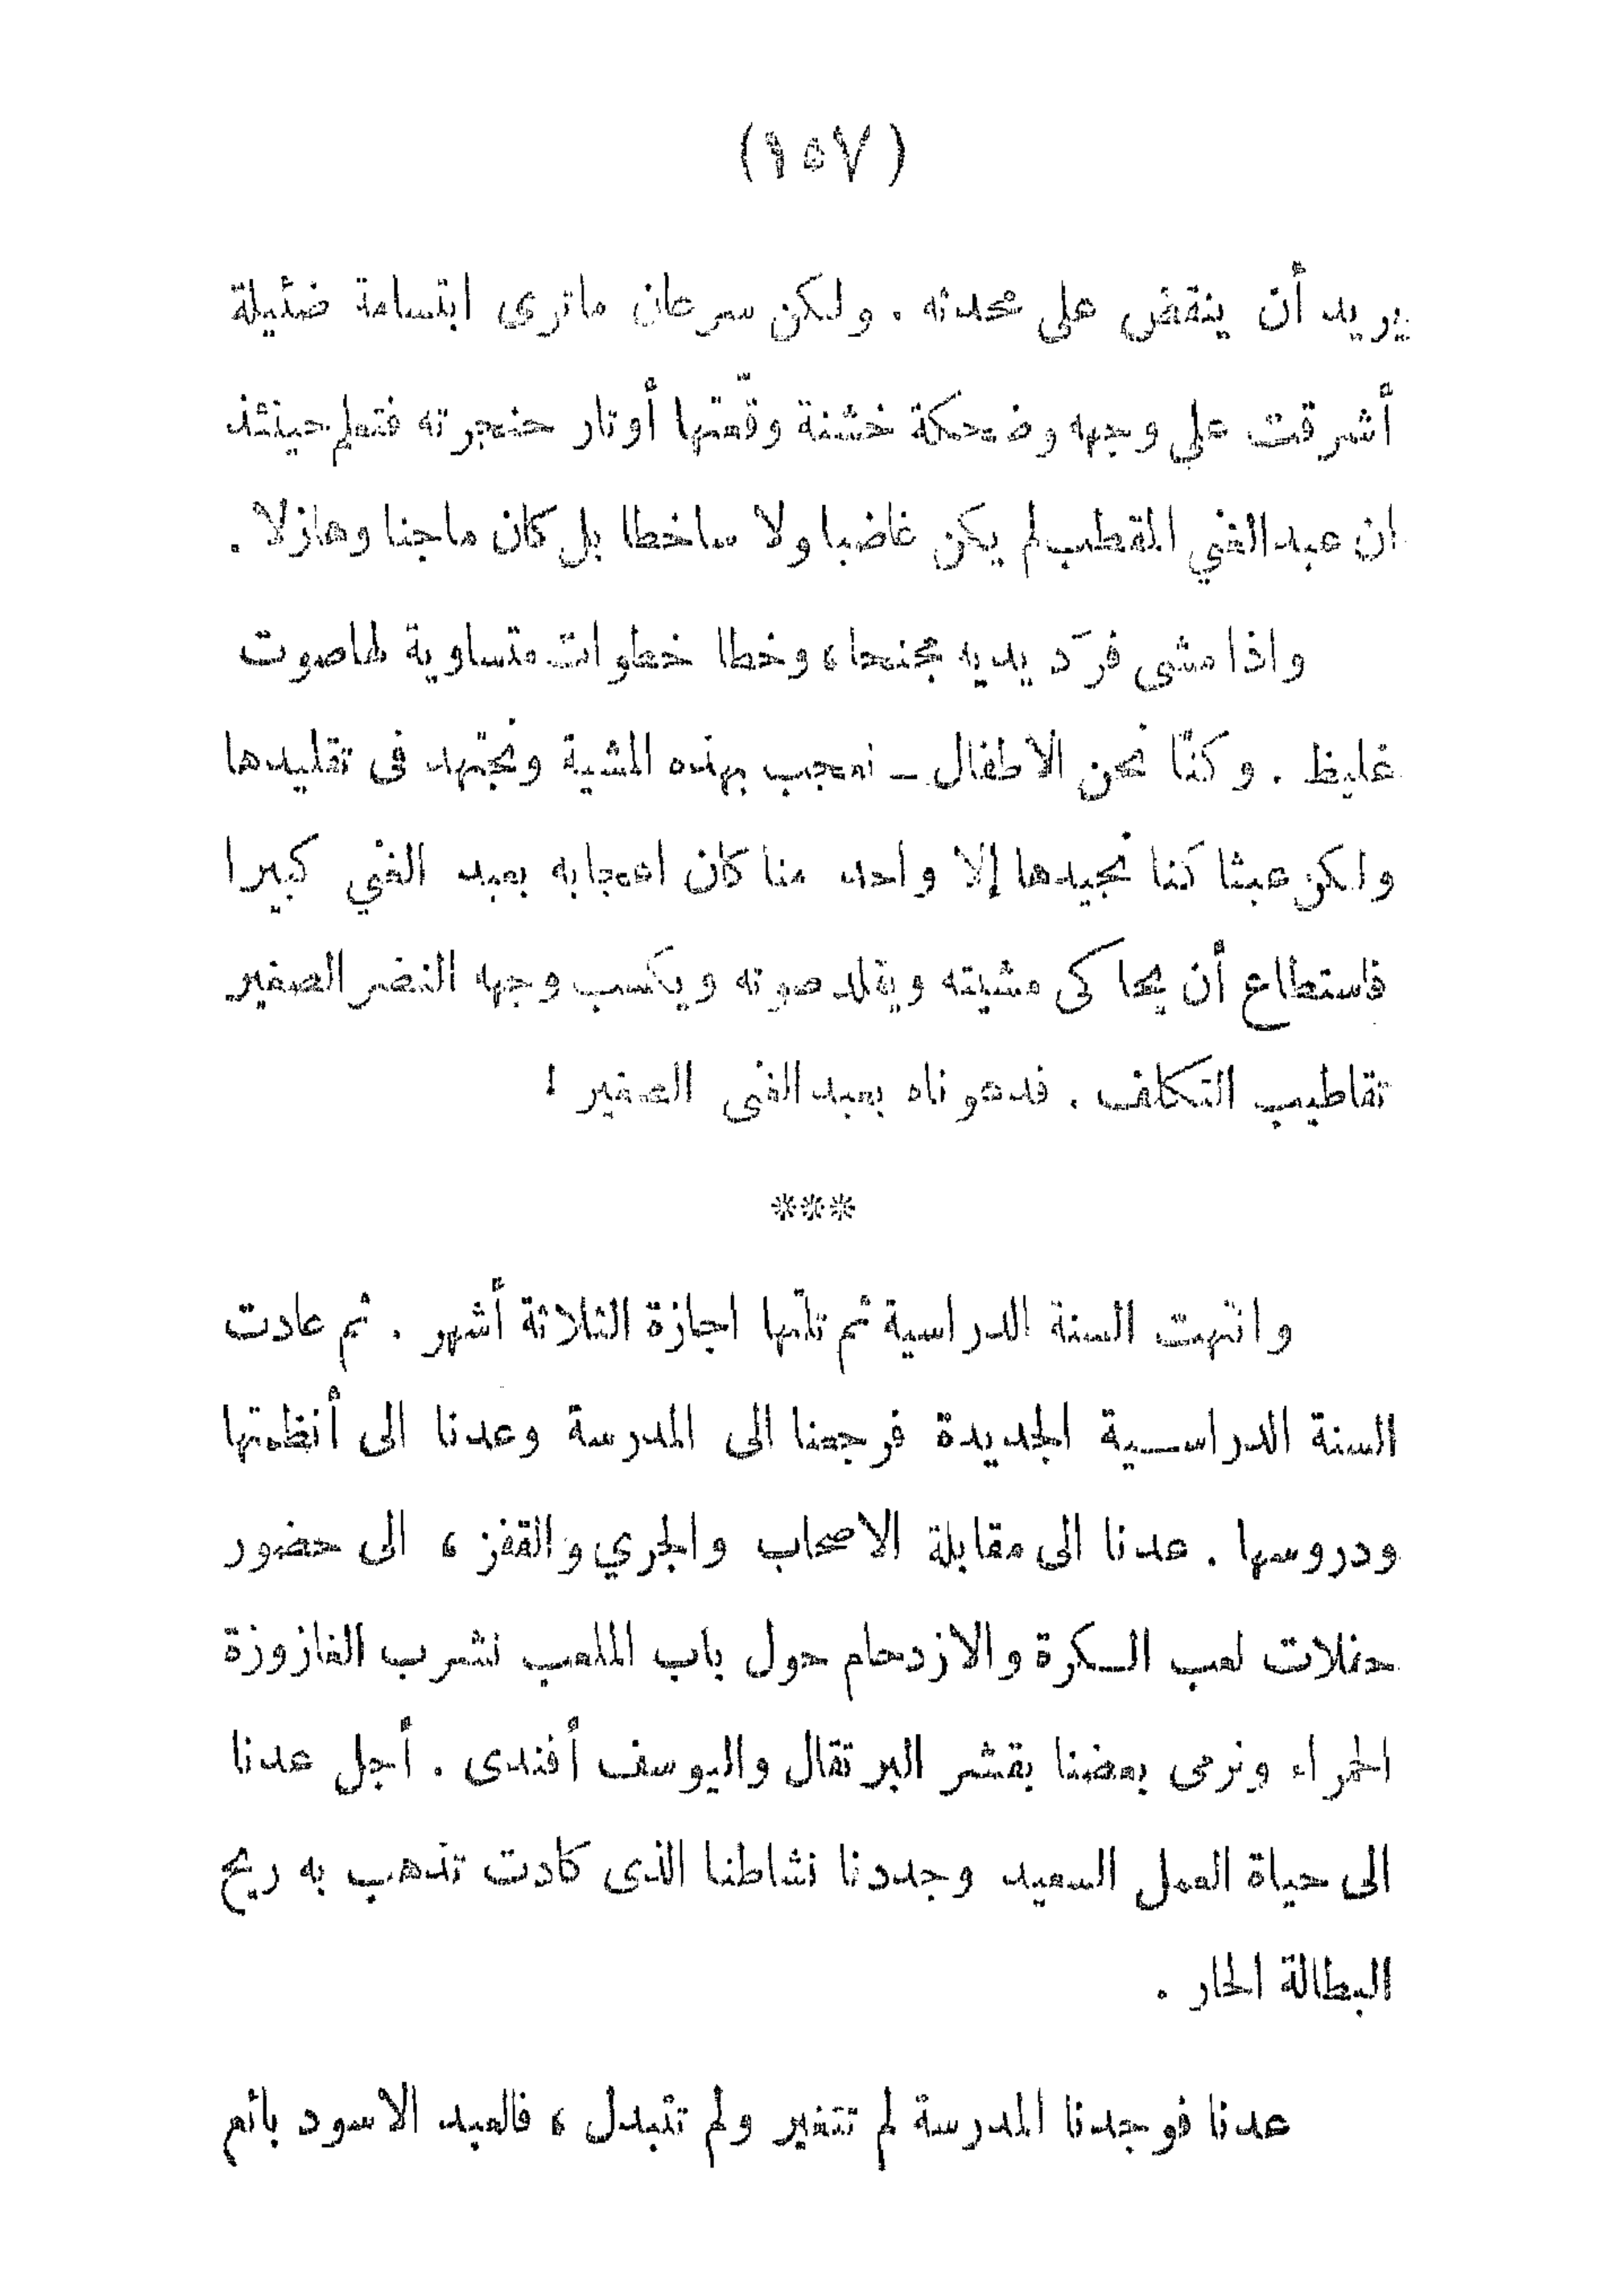 (١٥٧)
يريد أن ينقض على محدثه . ولكن سرعان ماترى ابتسامة ضئيلة
أشرقت على وجهه وضحكة خشنة وقّعتها أوتار حنجرته فتعلم حينئذ
ان عبدالغني المقطب لم يكن غاضبا ولا ساخطا بل كان ماجنا وهازلا .
واذا مشى فرّد يديه مجنحا ، وخطا خطوات متساوية لها صوت
غليظ . وكنّا نحن الاطفال ــ نعجب بهذه المشية ونجتهد فى تقليدها
ولكن عبثا كنا نجيدها إلا واحد منا كان اعجابه بعبد الغني كبيرا
فاستطاع أن يحاكى مشيته ويقلد صوته ويكسب وجهه النضر الصغير
تقاطيب التكلف . فدعوناه بعبد الغنى الصغير !
***
وانتهت السنة الدراسية ثم تلتها اجازة الثلاثة أشهر . ثم عادت
السنة الدراسية الجديدة فرجعنا الى المدرسة وعدنا الى أنظمتها
ودروسها . عدنا الى مقابلة الاصحاب والجري والقفز ، الى حضور
حفلات لعب الكرة والازدحام حول باب الملعب نشرب الغازوزة
الحمراء ونرمى بعضنا بقشر البرتقال واليوسف أفندى . أجل عدنا
الى حياة العمل السعيد وجددنا نشاطنا الذى كادت تذهب به ريح
البطالة الحار .
عدنا فوجدنا المدرسة لم تتغير ولم تتبدل ، فالعبد الاسود بائع